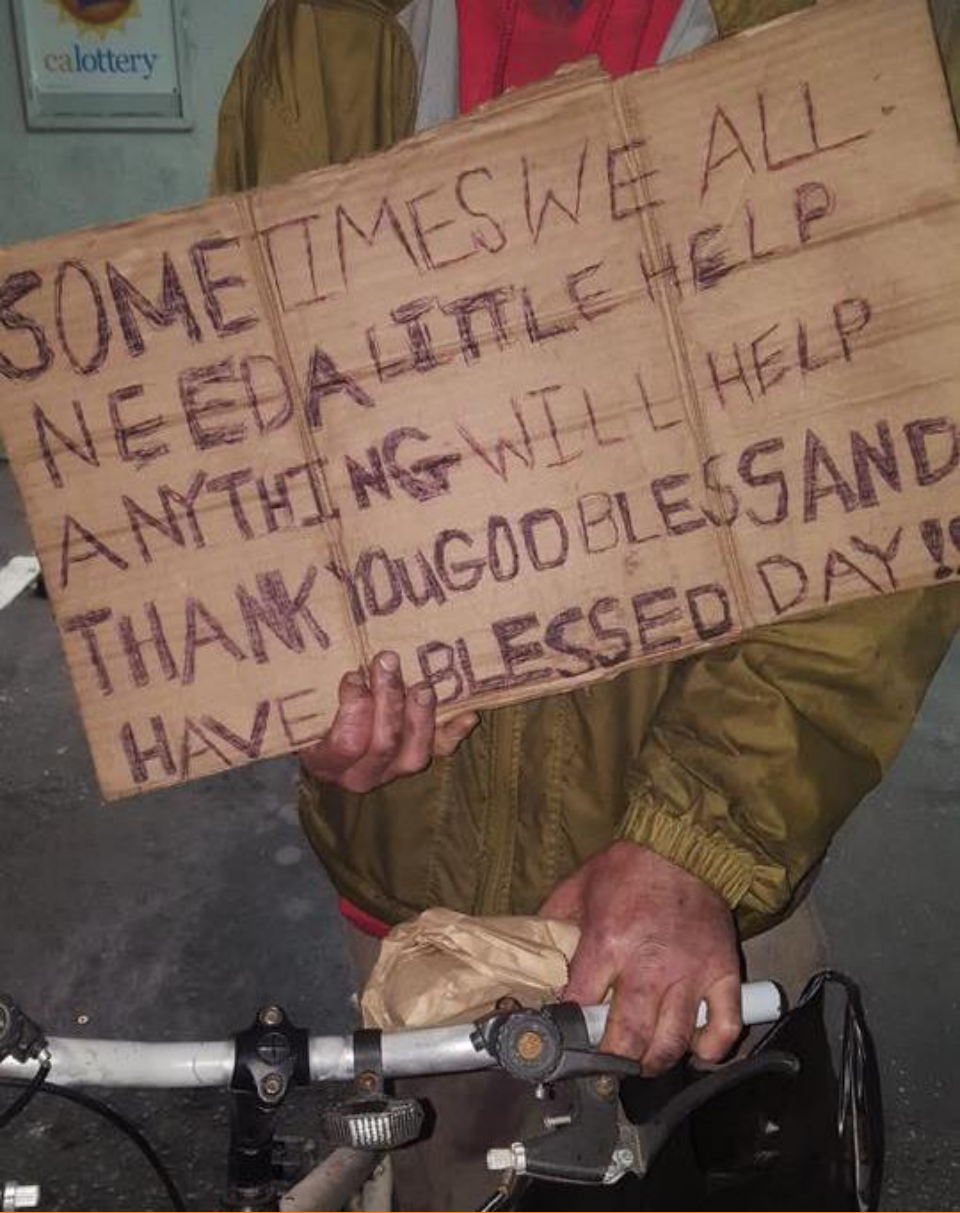 calottery
SOMETIMES WE ALL
NEED A LITTLE HELP
ANYTHING WILL HELP
THANK YOU GOD BLESS AND
HAVE BLESSED DAY!!